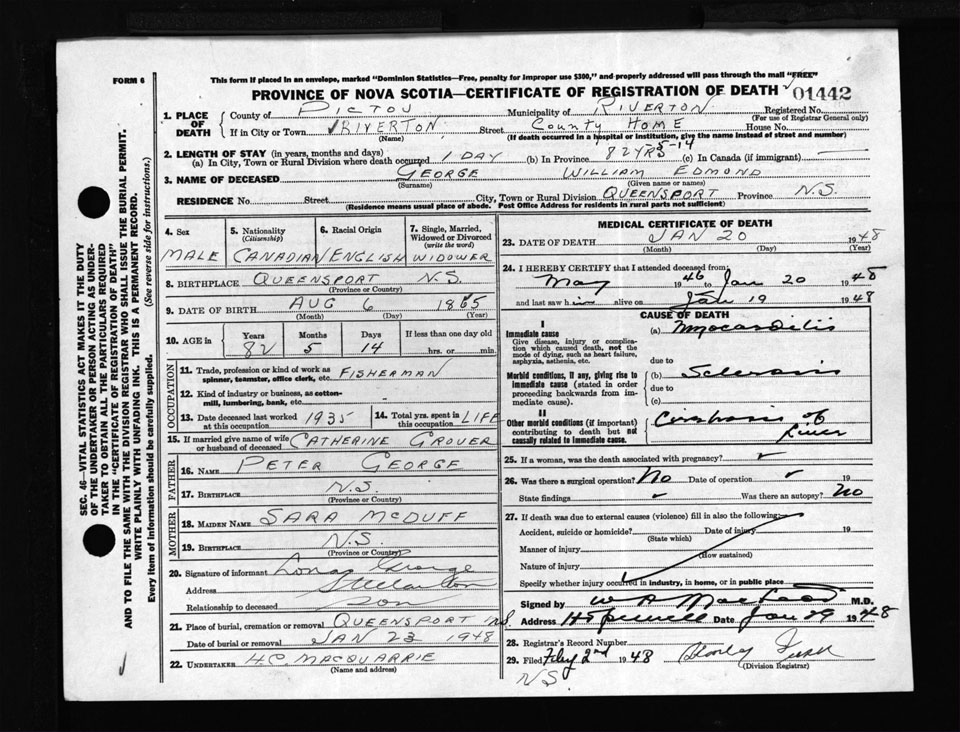 FORM 6
This form if placed in an envelope, marked "Dominion Statistics—Free, penalty for improper use $300," and properly addressed will pass through the mail "FREE"
PROVINCE OF NOVA SCOTIA—CERTIFICATE OF REGISTRATION OF DEATH 01442
1. PLACE OF DEATH
County of PICTOU Municipality of RIVERTON Registered No.
(For use of Registrar General only)
If in City or Town RIVERTON Street County Home House No.
(Name) (If death occurred in a hospital or institution, give the name instead of street and number)
2. LENGTH OF STAY (in years, months and days)
(a) In City, Town or Rural Division where death occurred 1 DAY (b) In Province 82 YRS-5-14 (c) In Canada (if immigrant)
3. NAME OF DECEASED GEORGE WILLIAM EDMOND
(Surname) (Given name or names)
RESIDENCE No. Street City, Town or Rural Division QUEENSPORT Province N.S.
(Residence means usual place of abode. Post Office Address for residents in rural parts not sufficient)
4. Sex
MALE
5. Nationality
(Citizenship)
CANADIAN
6. Racial Origin
ENGLISH
7. Single, Married, Widowed or Divorced
(write the word)
WIDOWER
8. BIRTHPLACE QUEENSPORT N.S.
(Province or Country)
9. DATE OF BIRTH AUG 6 1865
(Month) (Day) (Year)
10. AGE in
Years Months Days If less than one day old
82 5 14 hrs. or min.
OCCUPATION
11. Trade, profession or kind of work as spinner, teamster, office clerk, etc. FISHERMAN
12. Kind of industry or business, as cotton-mill, lumbering, bank, etc.
13. Date deceased last worked at this occupation 1935
14. Total yrs. spent in this occupation LIFE
15. If married give name of wife or husband of deceased CATHERINE GROVER
FATHER
16. NAME PETER GEORGE
17. BIRTHPLACE N.S.
(Province or Country)
MOTHER
18. MAIDEN NAME SARA MCDUFF
19. BIRTHPLACE N.S.
(Province or Country)
20. Signature of informant George
Address Stellarton
Relationship to deceased Son
21. Place of burial, cremation or removal QUEENSPORT N.S.
Date of burial or removal JAN 23 1948
22. UNDERTAKER H.C. MACQUARRIE
(Name and address)
MEDICAL CERTIFICATE OF DEATH
23. DATE OF DEATH JAN 20 1948
(Month) (Day) (Year)
24. I HEREBY CERTIFY that I attended deceased from:
May 1946 to Jan 20 1948
and last saw him alive on Jan 19 1948
CAUSE OF DEATH
I
Immediate cause
Give disease, injury or complication which caused death, not the mode of dying, such as heart failure, asphyxia, asthenia, etc.
(a) Myocarditis
due to
Morbid conditions, if any, giving rise to immediate cause (stated in order proceeding backwards from immediate cause).
(b) Sclerosis
due to
(c)
II
Other morbid conditions (if important) contributing to death but not causally related to immediate cause.
Cirrhosis of Liver
25. If a woman, was the death associated with pregnancy?
26. Was there a surgical operation? No Date of operation 19
State findings Was there an autopsy? No
27. If death was due to external causes (violence) fill in also the following:
Accident, suicide or homicide? Date of injury 19
(State which)
Manner of injury
(How sustained)
Nature of injury
Specify whether injury occurred in industry, in home, or in public place
Signed by M.D.
Address Hopewell Date Jan 29 1948
28. Registrar's Record Number
29. Filed Feby 2nd 1948
(Division Registrar)
NS
SEC. 46—VITAL STATISTICS ACT MAKES IT THE DUTY
OF THE UNDERTAKER OR PERSON ACTING AS UNDER-
TAKER TO OBTAIN ALL THE PARTICULARS REQUIRED
IN THE "CERTIFICATE OF REGISTRATION OF DEATH"
AND TO FILE THE SAME WITH THE DIVISION REGISTRAR WHO SHALL ISSUE THE BURIAL PERMIT.
WRITE PLAINLY WITH UNFADING INK. THIS IS A PERMANENT RECORD.
Every item of information should be carefully supplied. (See reverse side for instructions.)